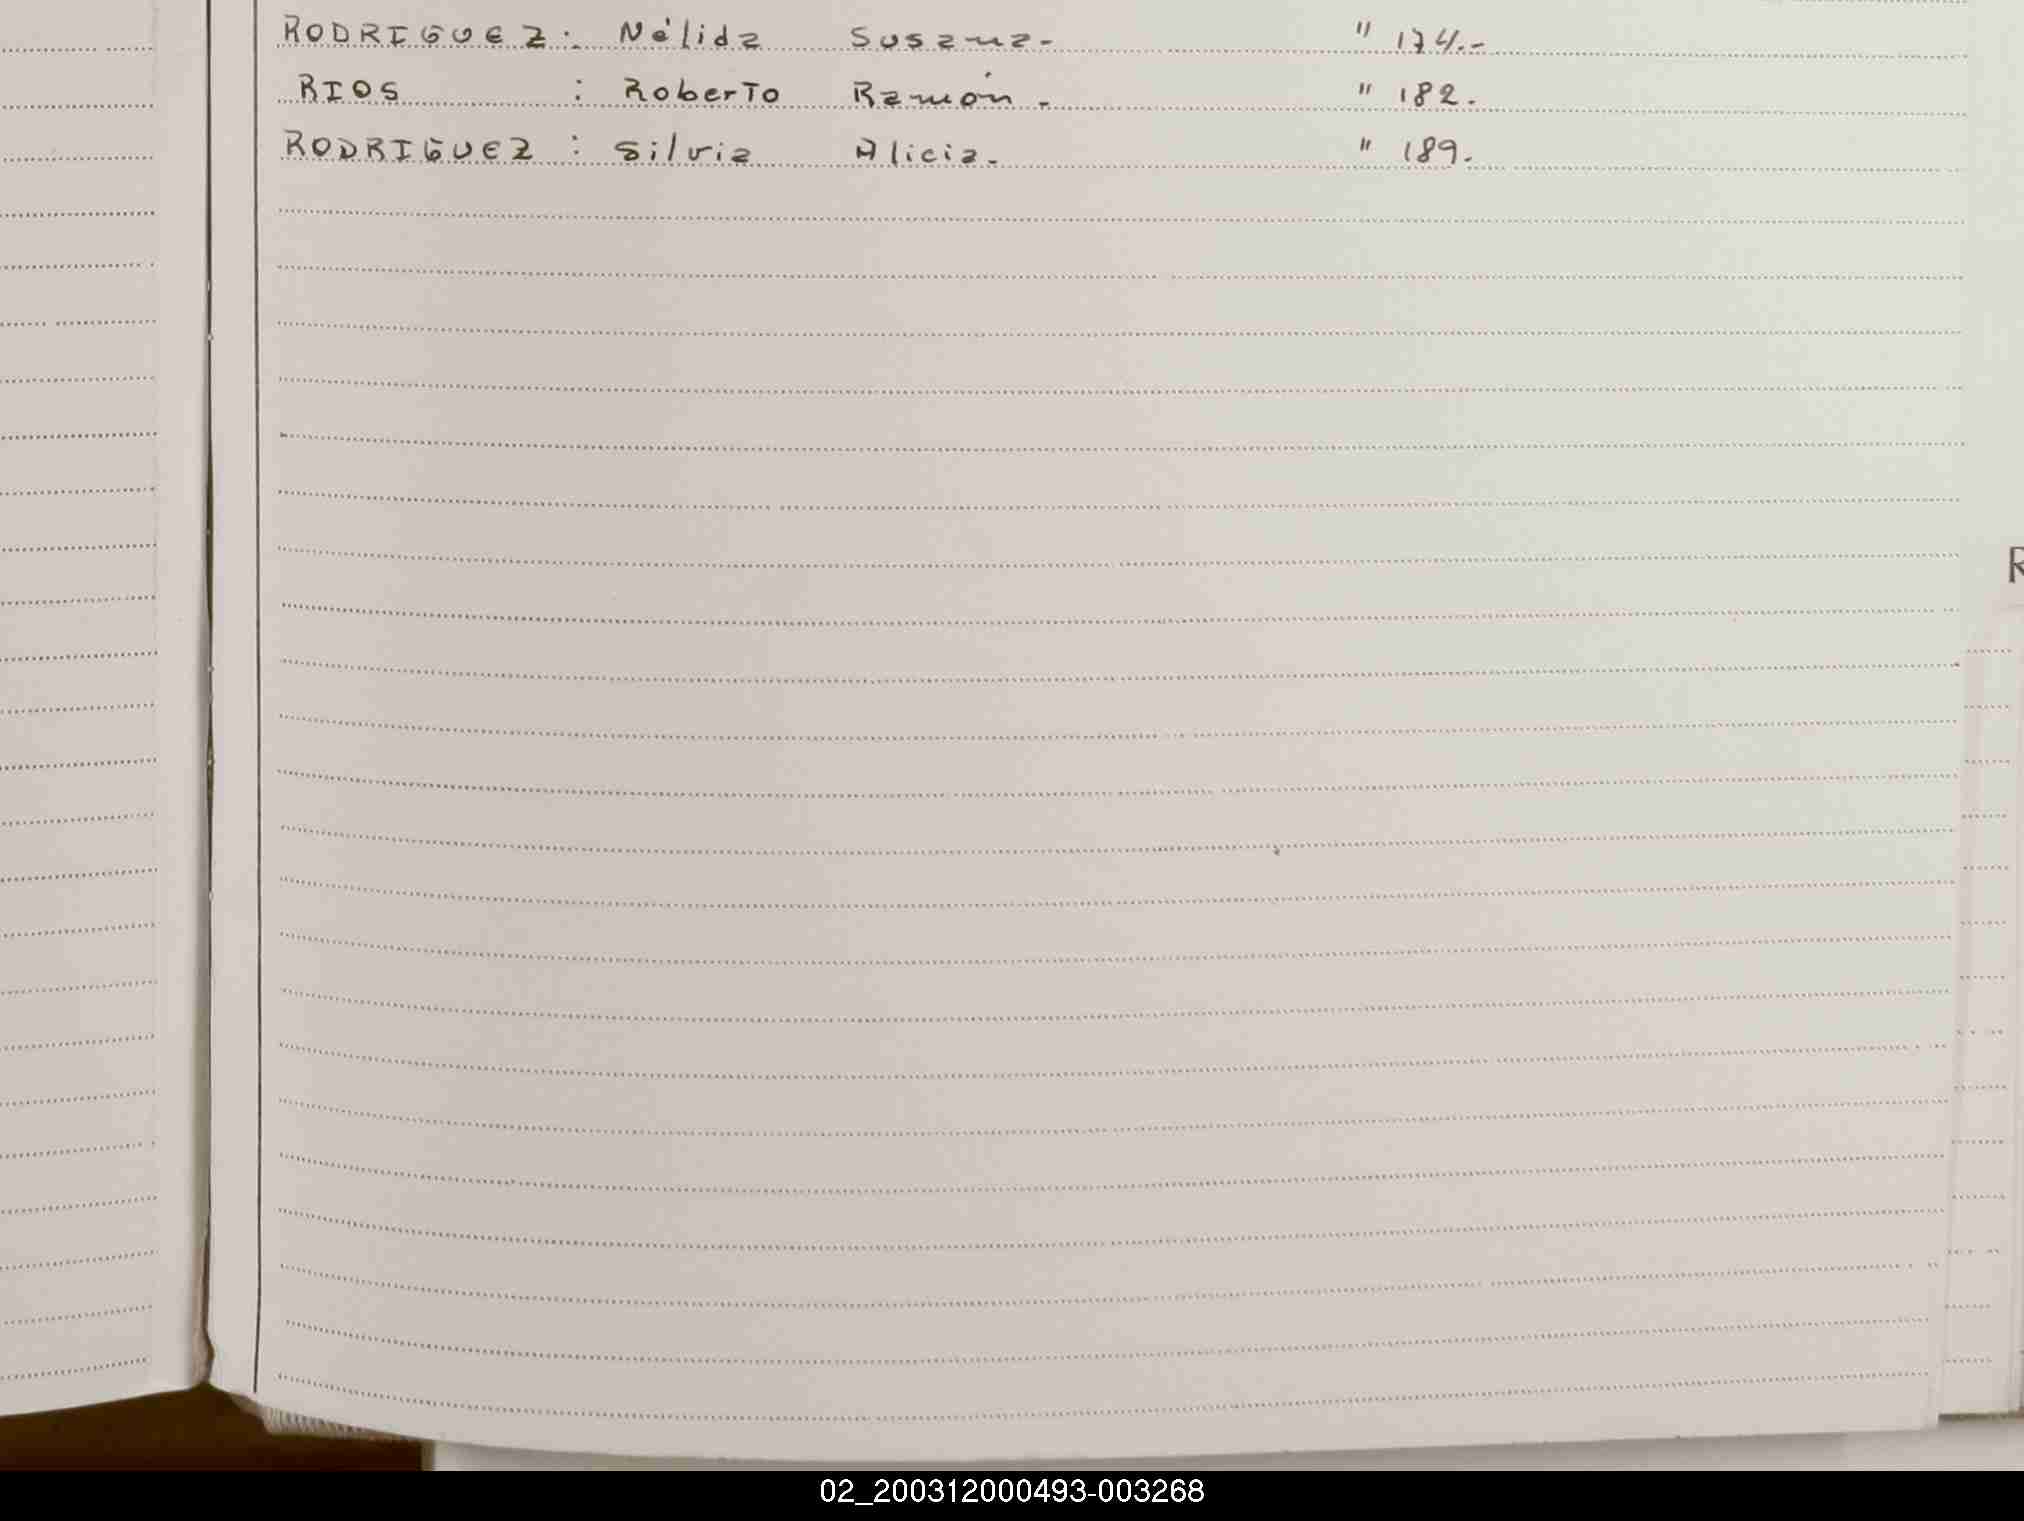 RODRIGUEZ: Nélida Susana- " 174.-
RIOS : Roberto Ramón. " 182.
RODRIGUEZ : Silvia Alicia. " 189.
R
02_200312000493-003268